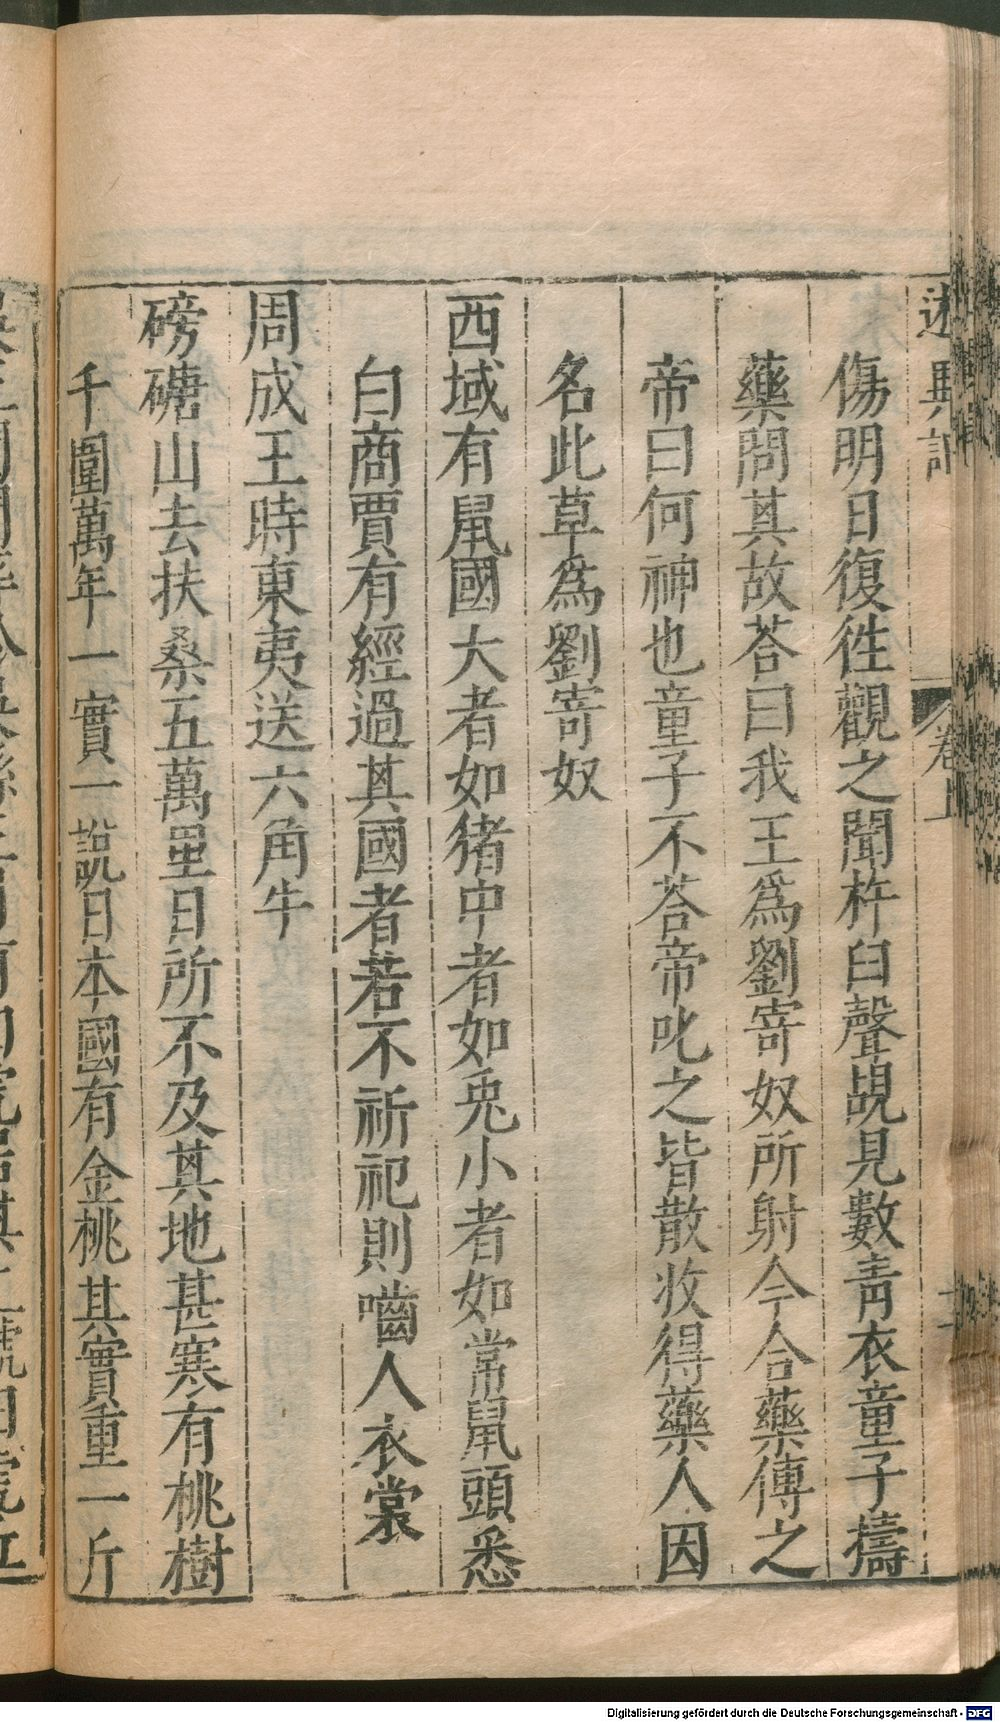 述異記 卷上
傷明日復徃觀之聞杵臼聲覘見數靑衣童子擣
藥問其故荅曰我王爲劉寄奴所射今合藥傅之
帝曰何神也童子不荅帝叱之皆散收得藥人因
名此草爲劉寄奴
西域有鼠國大者如猪中者如兎小者如常鼠頭悉
白商賈有經過其國者若不祈祀則嚙人衣裳
周成王時東夷送六角牛
磅磄山去扶桑五萬里日所不及其地甚寒有桃樹
千圍萬年一實一說日本國有金桃其實重一斤
Digitalisierung gefördert durch die Deutsche Forschungsgemeinschaft - DFG